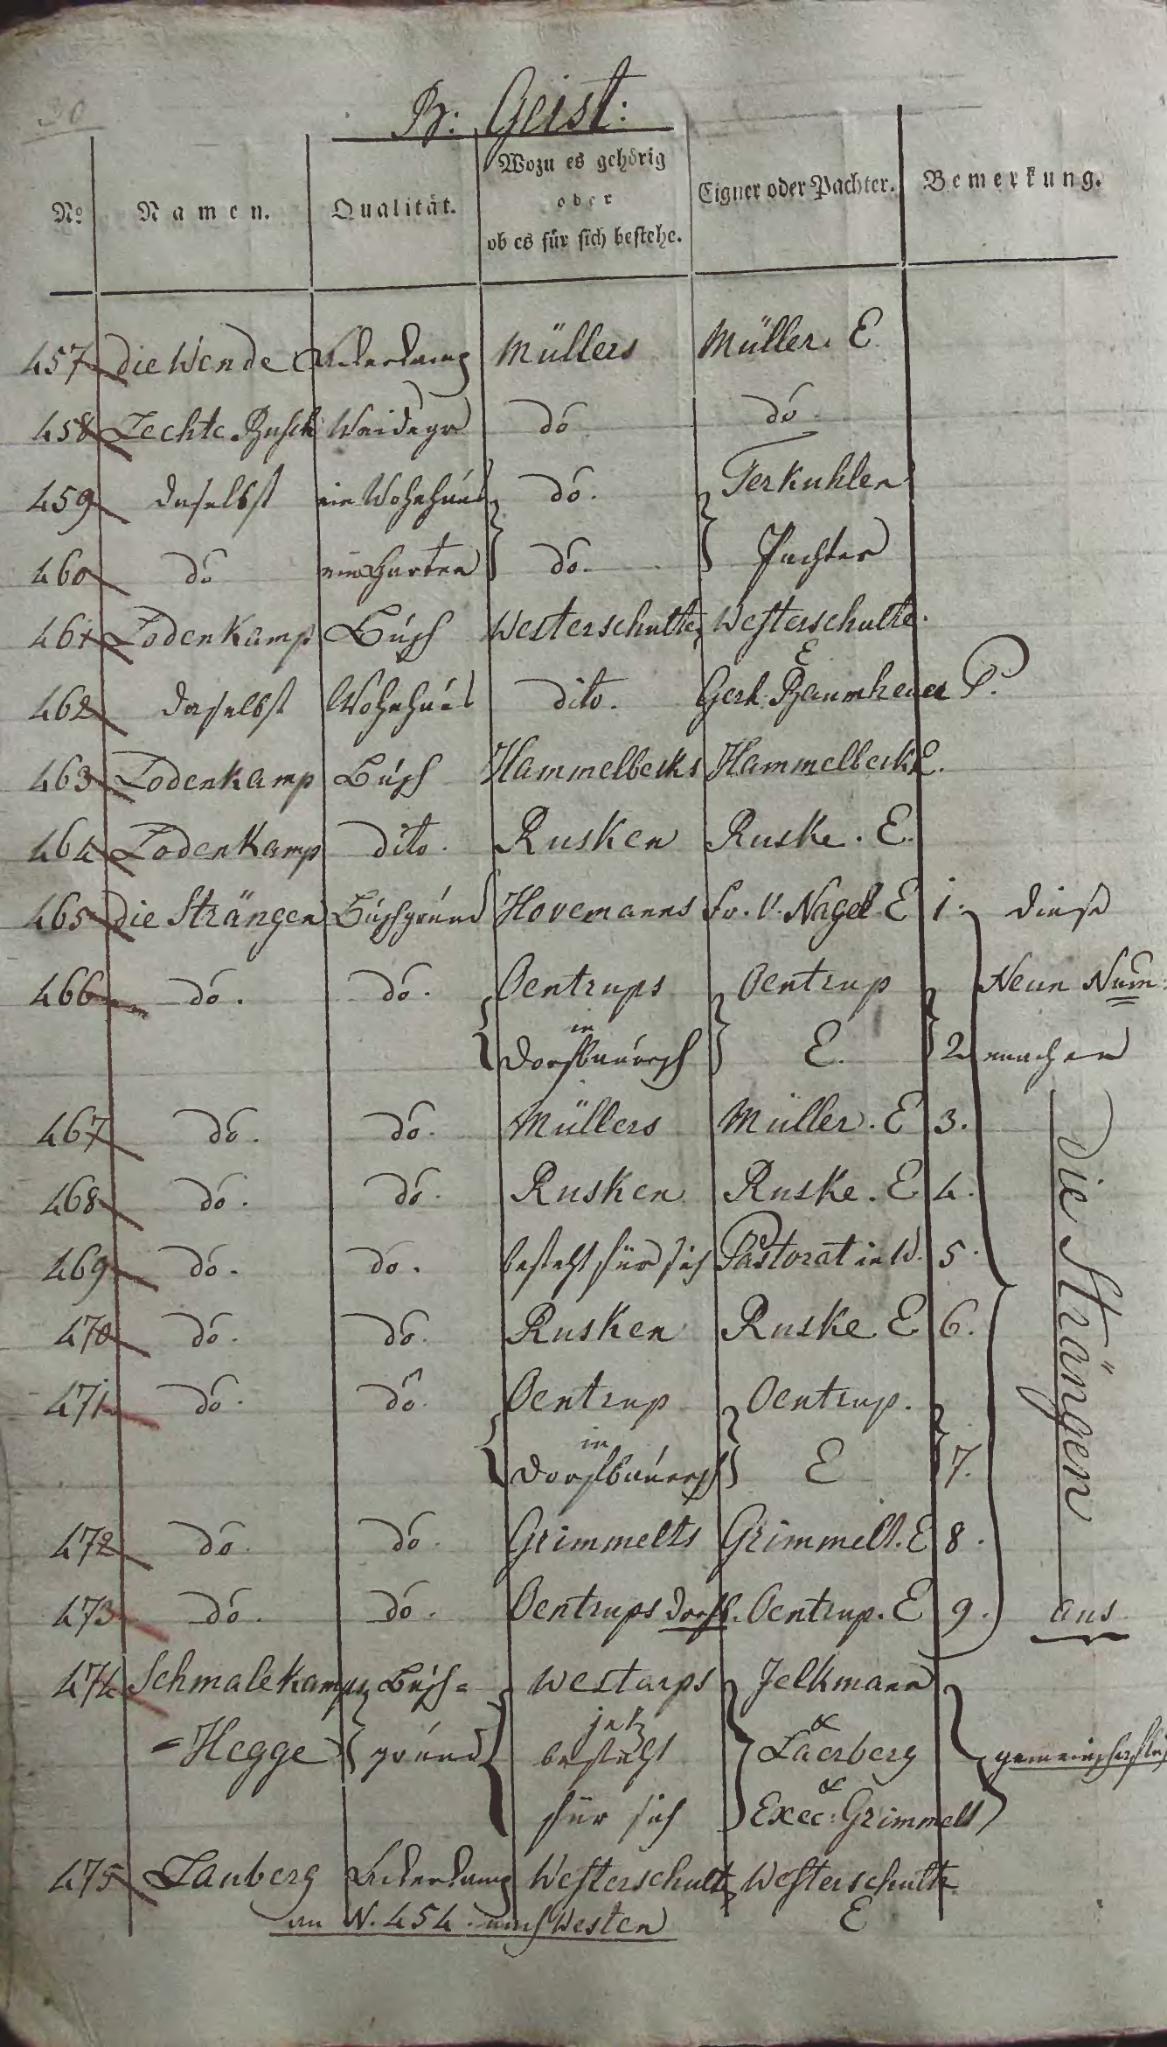 30
B: Geist:
No Namen. Qualität. Wozu es gehörig oder ob es für sich bestehe. Eigner oder Pachter. Bemerkung.
457 die Wende Ackerkamp Müllers Müller. E
458 Lechte Busch Waidegr do do
459 daselbst ein Wohnhaus do. Terkuhlen
460 do ein Garten do. Pachter
461 Lodenkamp Busch Westerschulte Westerschulte.
E
462 daselbst Wohnhaus dito. Gerh. Baumheuer P.
463 Lodenkamp Busch Hammelbecks Hammelbeck E.
464 Lodenkamp dito. Rusken Ruske. E.
465 die Strängen Buschgrund Hovemanns Fr. V. Nagel E 1. diese
466 do. do. Oentrups Oentrup Neun Num:
in
Dorfbauersch E. 2 machen
467 do. do. Müllers Müller. E 3.
468 do. do. Rusken Ruske. E 4.
469 do. do. besteht für sich Pastorat in W. 5.
470 do. do. Rusken Ruske E 6.
471 do. do. Oentrup Oentrup.
in
Dorfbauersch E 7.
die Strängen
472 do. do. Grimmelts Grimmelt. E 8.
473 do. do. Oentrups Dorfb. Oentrup. E 9. aus
474 Schmalekamps Busch= Westarps Jelkmann
=Hegge grund jetz &
besteht Laerberg gemeinschaftlich
für sich &
Exec: Grimmelt
475 Lauberg Ackerkamp Westerschult Westerschulte
an N. 454. nach Westen E